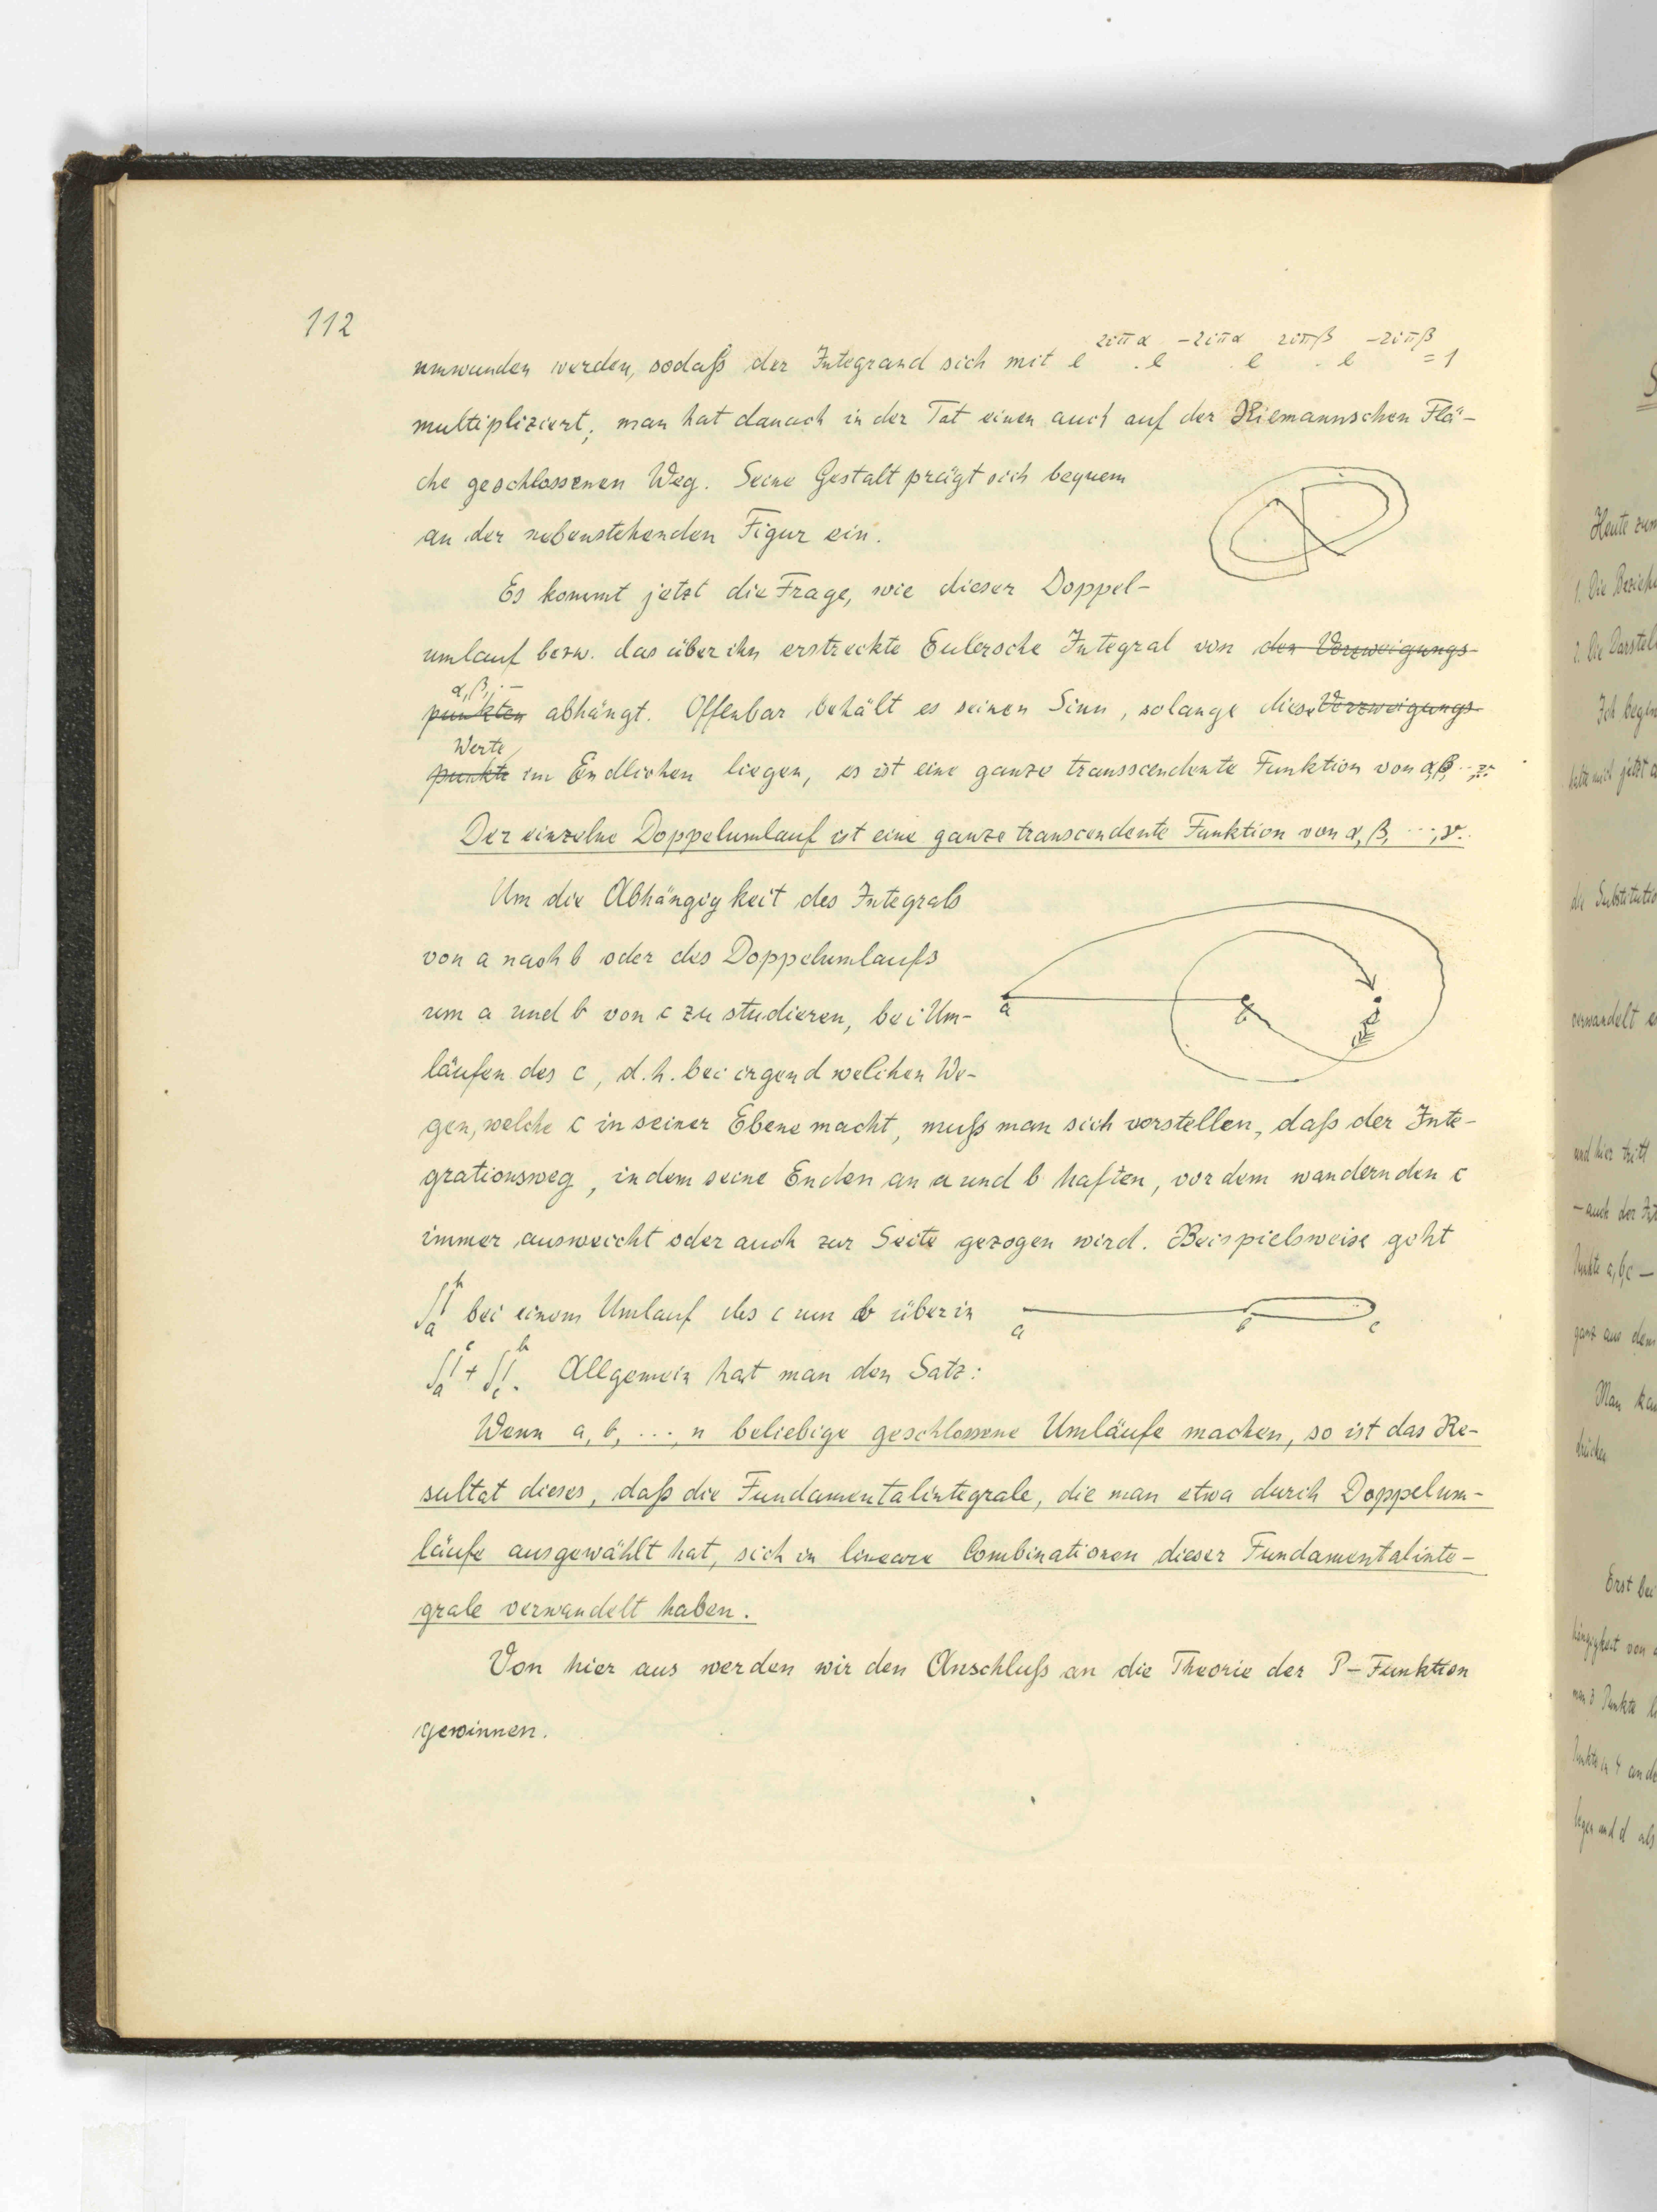 112
umwunden werden, sodaß der Integrand sich mit e^{2iπα} . e^{-2iπα} . e^{2iπβ} . e^{-2iπβ} = 1
multipliziert; man hat danach in der Tat einen auch auf der Riemannschen Flä-
che geschlossenen Weg. Seine Gestalt prägt sich bequem
an der nebenstehenden Figur ein.
Es kommt jetzt die Frage, wie dieser Doppel-
umlauf bezw. das über ihn erstreckte Eulersche Integral von den Verzweigungs-
α, β, ...
punkten abhängt. Offenbar behält es seinen Sinn, solange diese Verzweigungs-
Werte
punkte im Endlichen liegen, es ist eine ganze transscendente Funktion von α, β, ..., ν.
Der einzelne Doppelumlauf ist eine ganze transcendente Funktion von α, β, ..., ν.
Um die Abhängigkeit des Integrals
von a nach b oder des Doppelumlaufs
um a und b von c zu studieren, bei Um-
a b c
läufen des c, d.h. bei irgend welchen We-
gen, welche c in seiner Ebene macht, muß man sich vorstellen, daß der Inte-
grationsweg, indem seine Enden an a und b haften, vor dem wandernden c
immer ausweicht oder auch zur Seite gezogen wird. Beispielsweise geht
∫_a^b bei einem Umlauf des c um b über in
a b c
∫_a^c + ∫_c^b. Allgemein hat man den Satz:
Wenn a, b, ..., n beliebige geschlossene Umläufe machen, so ist das Re-
sultat dieses, daß die Fundamentalintegrale, die man etwa durch Doppelum-
läufe ausgewählt hat, sich in lineare Combinationen dieser Fundamentalinte-
grale verwandelt haben.
Von hier aus werden wir den Anschluß an die Theorie der P-Funktion
gewinnen.